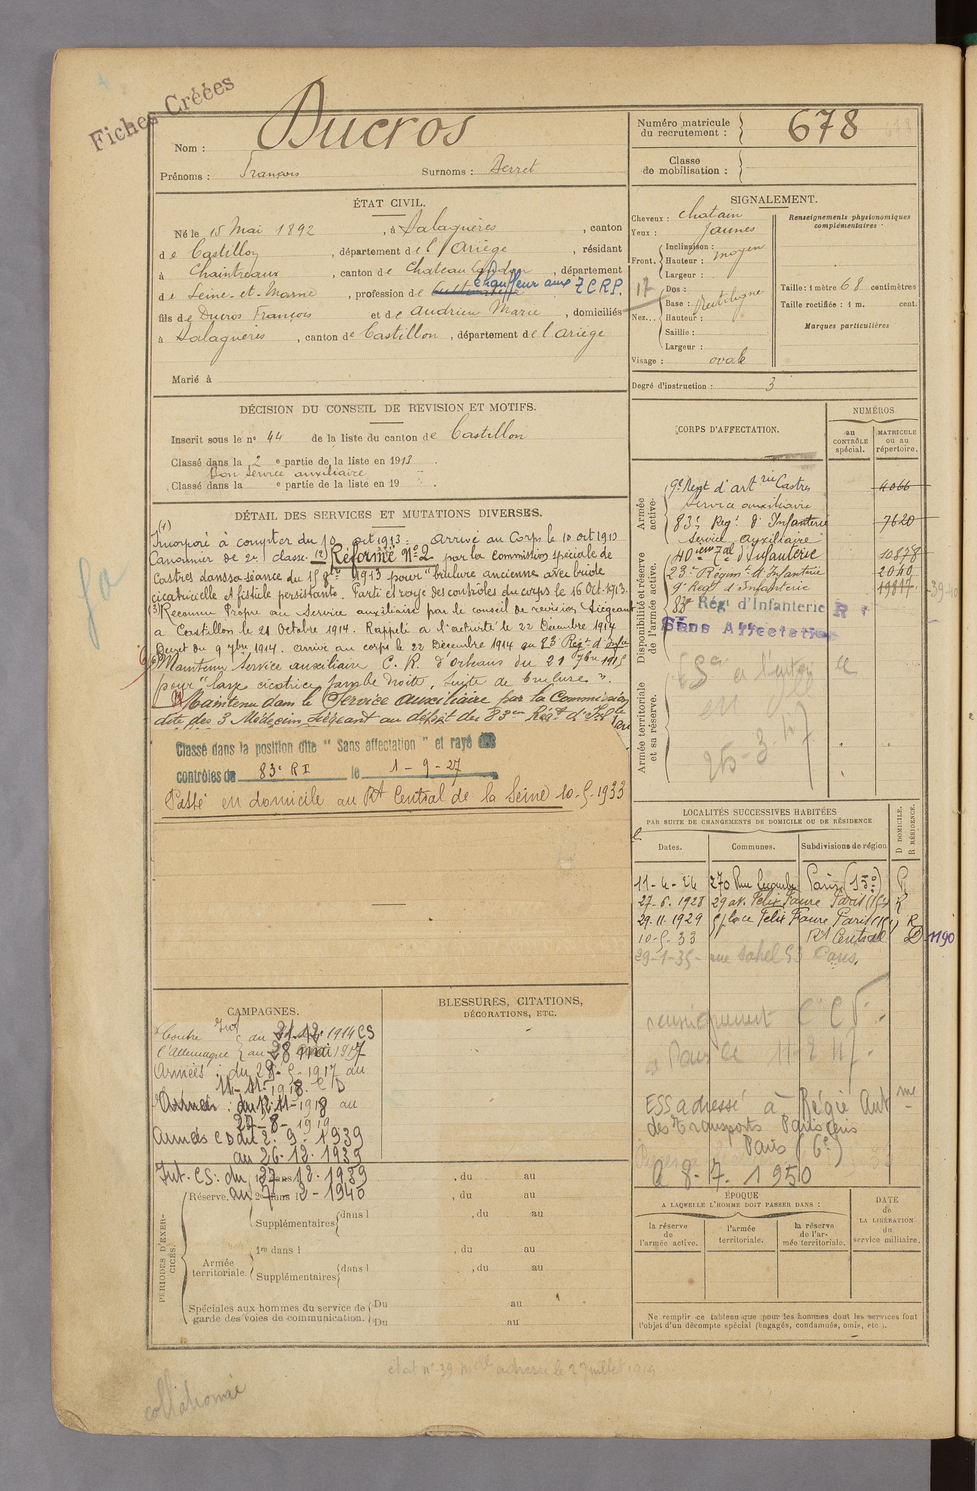 Fiches Créées
Nom : Ducros
Prénoms : François Surnoms : Derret
Numéro matricule du recrutement : 678
Classe de mobilisation :
ÉTAT CIVIL.
Né le 15 Mai 1892, à Salaguères, canton
de Castillon, département de l'Ariège, résidant
à Chaintreaux, canton de Chateau Landon, département
de Seine-et-Marne, profession de Cultivateur chauffeur aux T.C.R.P.
fils de Ducros François et de Audrieu Marie, domiciliés
à Salaguères, canton de Castillon, département de l'Ariège
Marié à
SIGNALEMENT.
Cheveux : chatain
Yeux : jaunes
Front. Inclinaison :
Hauteur : moyen
Largeur :
Nez... Dos :
Base : rectiligne
Hauteur :
Saillie :
Largeur :
Visage : ovale
17
Renseignements physionomiques complémentaires :
Taille : 1 mètre 68 centimètres
Taille rectifiée : 1 m. cent.
Marques particulières
Degré d'instruction : 3
DÉCISION DU CONSEIL DE REVISION ET MOTIFS.
Inscrit sous le n° 44 de la liste du canton de Castillon
Classé dans la 2e partie de la liste en 1913.
Bon service auxiliaire
Classé dans la e partie de la liste en 19
DÉTAIL DES SERVICES ET MUTATIONS DIVERSES.
(1) Incorporé à compter du 10 oct 1913. Arrivé au Corps le 10 oct 1913
Canonnier de 2e classe. (2) Réformé N° 2 par la commission spéciale de
Castres dans sa séance du 15 8bre 1913 pour "brulure ancienne avec bride
cicatricielle et fistule persistante. Parti et rayé des controles du corps le 16 Oct. 1913.
(3) Reconnu Propre au Service auxiliaire par le conseil de revision siégeant
à Castillon le 21 Octobre 1914. Rappelé à l'activité le 22 Décembre 1914
Decret du 9 7bre 1914. arrivé au corps le 22 Décembre 1914 au 83 Regt d'Infie
Maintenu Service auxiliaire C. R. d'Orleans du 21 7bre 1915
pour "large cicatrice jambe droite, suite de brulure".
Maintenu dans le Service auxiliaire par la Commission
dite des 3 Médecins siégeant au dépôt des 83em Régt d'Inf
Classé dans la position dite "Sans affectation" et rayé des
contrôles de 83e RI le 1-9-27
Passé en domicile au Rt Central de la Seine 10-5-1933
CORPS D'AFFECTATION.
NUMÉROS
au CONTRÔLE spécial.
MATRICULE ou au répertoire.
Armée active.
9e Regt d'artrie Castres 4066
Service auxiliaire
83e Regt d'Infanterie 7620
Service auxiliaire
Disponibilité et réserve de l'armée active.
40em d'Infanterie 10878
23e Régimt d'Infanterie 2060
9e Regt d'Infanterie 19817
83e Régt d'Infanterie
Sans Affectation
Armée territoriale et sa réserve.
25-3-47
LOCALITÉS SUCCESSIVES HABITÉES
PAR SUITE DE CHANGEMENTS DE DOMICILE OU DE RÉSIDENCE
Dates. Communes. Subdivisions de région
D DOMICILE. R RÉSIDENCE.
11-4-26 270 Rue Lecourbe Paris (15e) R
27-6.1928 29 av. Felix Faure Paris (15) R
29.11.1929 5 place Felix Faure Paris (15) R
10-5-33 Rt Central D 1190
29-1-35 rue Sahel 53 Paris.
11-2-47.
ESS adressé à Régie Autme
des Transports Parisiens
Paris (6e)
a 8-7.1950
CAMPAGNES.
Contre l'Allemagne
Int au 21-12-1914 CS
au 28 mai 1917
Armées : du 28-5-1917 au
11-11-1918. CD
Armées : du 12-11-1918 au
27-8-1919
Armées CD du 2.9.1939
au 26.12.1939
Int. CS : du 27.12.1939
au 7-2-1940
BLESSURES, CITATIONS, DÉCORATIONS, ETC.
PÉRIODES D'EXERCICES.
Réserve. 1re dans l , du au
2e dans l , du au
Supplémentaires dans l , du au
Armée territoriale. 1re dans l , du au
Supplémentaires dans l , du au
Spéciales aux hommes du service de garde des voies de communication. Du au
Du au
ÉPOQUE
A LAQUELLE L'HOMME DOIT PASSER DANS :
la réserve de l'armée active.
l'armée territoriale.
la réserve de l'armée territoriale.
DATE de LA LIBÉRATION du service militaire.
Ne remplir ce tableau que pour les hommes dont les services font
l'objet d'un décompte spécial (engagés, condamnés, omis, etc.).
état n° 39 adressé le 27 juillet 1919
collationné